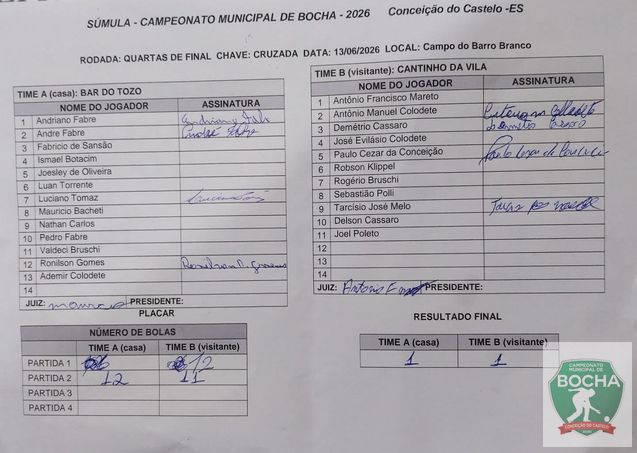 SÚMULA - CAMPEONATO MUNICIPAL DE BOCHA - 2026 Conceição do Castelo -ES
RODADA: QUARTAS DE FINAL CHAVE: CRUZADA DATA: 13/06/2026 LOCAL: Campo do Barro Branco
TIME A (casa): BAR DO TOZO
NOME DO JOGADOR ASSINATURA
1 Andriano Fabre
2 Andre Fabre
3 Fabricio de Sansão
4 Ismael Botacim
5 Joesley de Oliveira
6 Luan Torrente
7 Luciano Tomaz
8 Mauricio Bacheti
9 Nathan Carlos
10 Pedro Fabre
11 Valdeci Bruschi
12 Ronilson Gomes
13 Ademir Colodete
14
JUIZ: PRESIDENTE:
TIME B (visitante): CANTINHO DA VILA
NOME DO JOGADOR ASSINATURA
1 Antônio Francisco Mareto
2 Antônio Manuel Colodete
3 Demétrio Cassaro
4 José Evilásio Colodete
5 Paulo Cezar da Conceição
6 Robson Klippel
7 Rogério Bruschi
8 Sebastião Polli
9 Tarcísio José Melo
10 Delson Cassaro
11 Joel Poleto
12
13
14
JUIZ: PRESIDENTE:
PLACAR
NÚMERO DE BOLAS
TIME A (casa) TIME B (visitante)
PARTIDA 1 12
PARTIDA 2 12 11
PARTIDA 3
PARTIDA 4
RESULTADO FINAL
TIME A (casa) TIME B (visitante)
1 1
CAMPEONATO MUNICIPAL DE
BOCHA
CONCEIÇÃO DO CASTELO